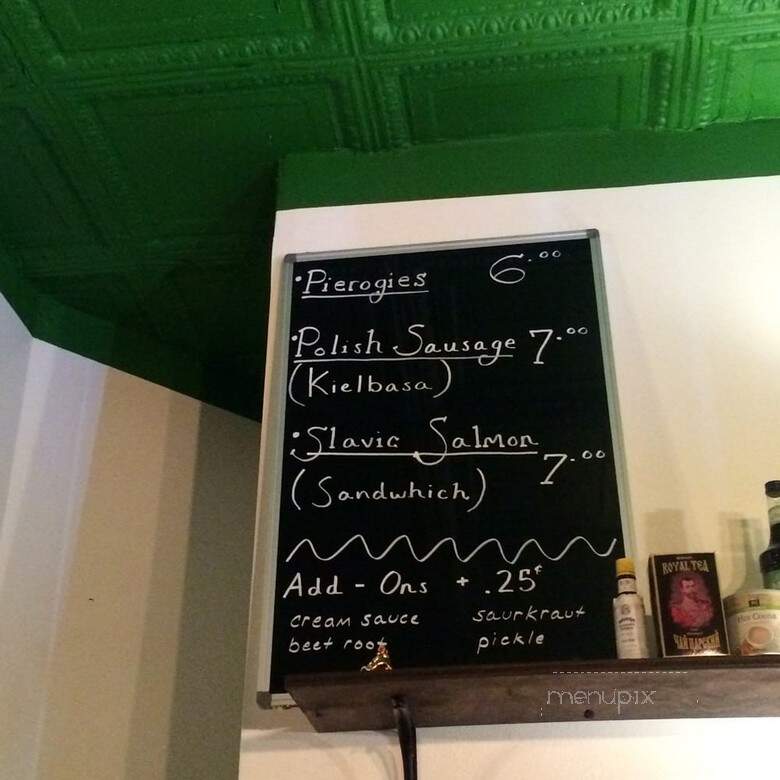 • Pierogies 6.00
• Polish Sausage 7.00
(Kielbasa)
• Slavic Salmon
7.00
(Sandwhich)
Add - Ons + .25¢
cream sauce saurkraut
beet root pickle
ROYAL TEA
ЧАЙ ЦАРСКИЙ
Hot Cocoa
menupix